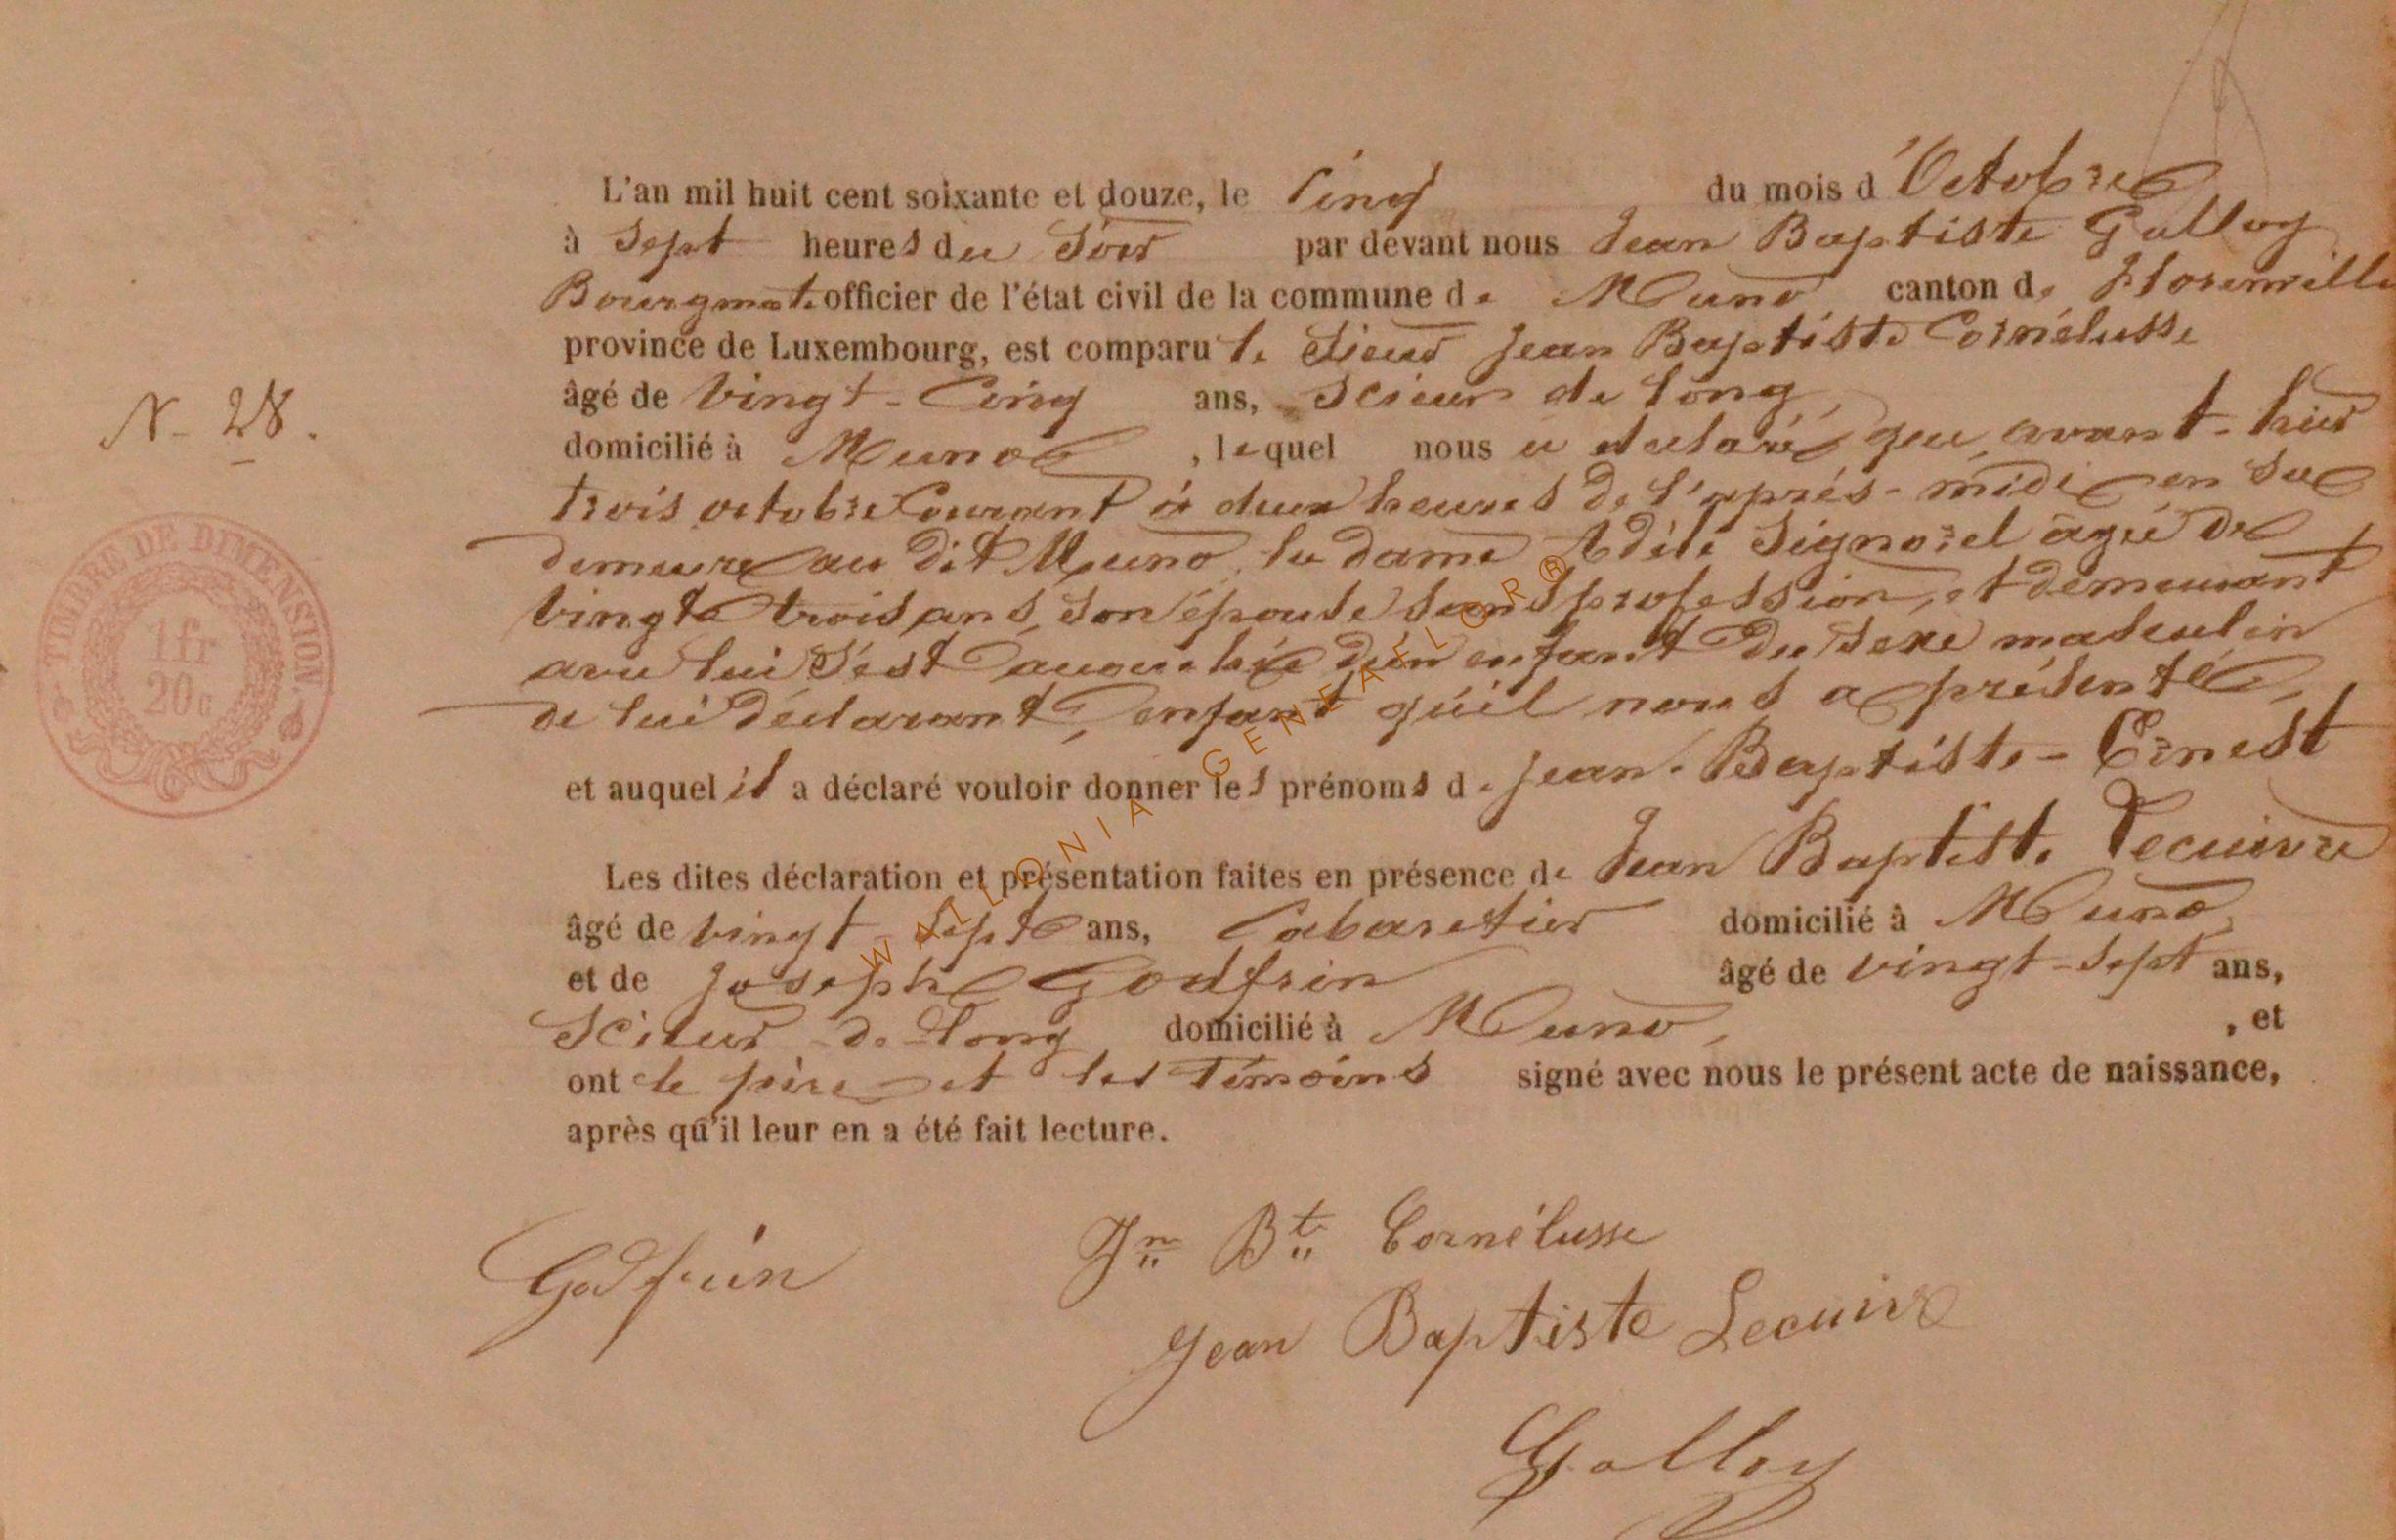 L'an mil huit cent soixante et douze, le Cinq du mois d'Octobre
à Sept heures du Soir par devant nous Jean Baptiste Galloy
officier de l'état civil de la commune de Muno canton de Florenville
province de Luxembourg, est comparu le Sieur Jean Baptiste Cornélusse
âgé de vingt-Cinq ans, Scieur de long,
domicilié à Muno, lequel nous a déclaré que, avant-hier
trois octobre Courant à deux heures de l'après-midi en sa
demeure au dit Muno, la dame Adèle Signorel agée de
vingt trois ans, son épouse sans profession, et demeurant
avec lui s'est accouchée d'un enfant du sexe masculin
de lui déclarant, enfant qu'il nous a présenté,
et auquel il a déclaré vouloir donner les prénoms de Jean-Baptiste-Ernest
Les dites déclaration et présentation faites en présence de Jean Baptiste Lecuivre
âgé de vingt Sept ans, Cabaretier domicilié à Muno,
et de Joseph Godfrin âgé de vingt-sept ans,
Scieur de long domicilié à Muno, , et
ont le père et les témoins signé avec nous le présent acte de naissance,
après qu'il leur en a été fait lecture.
N- 28.
TIMBRE DE DIMENSION.
1fr
20c
WALLONIA GENEAFLOR®
Godfrin
Jn Bte Cornélusse
Jean Baptiste Lecuivre
Galloy